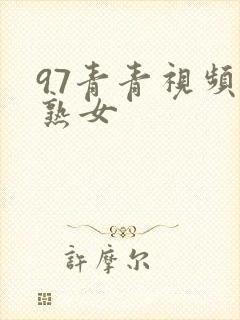 97青青視頻
熟女
許摩尔